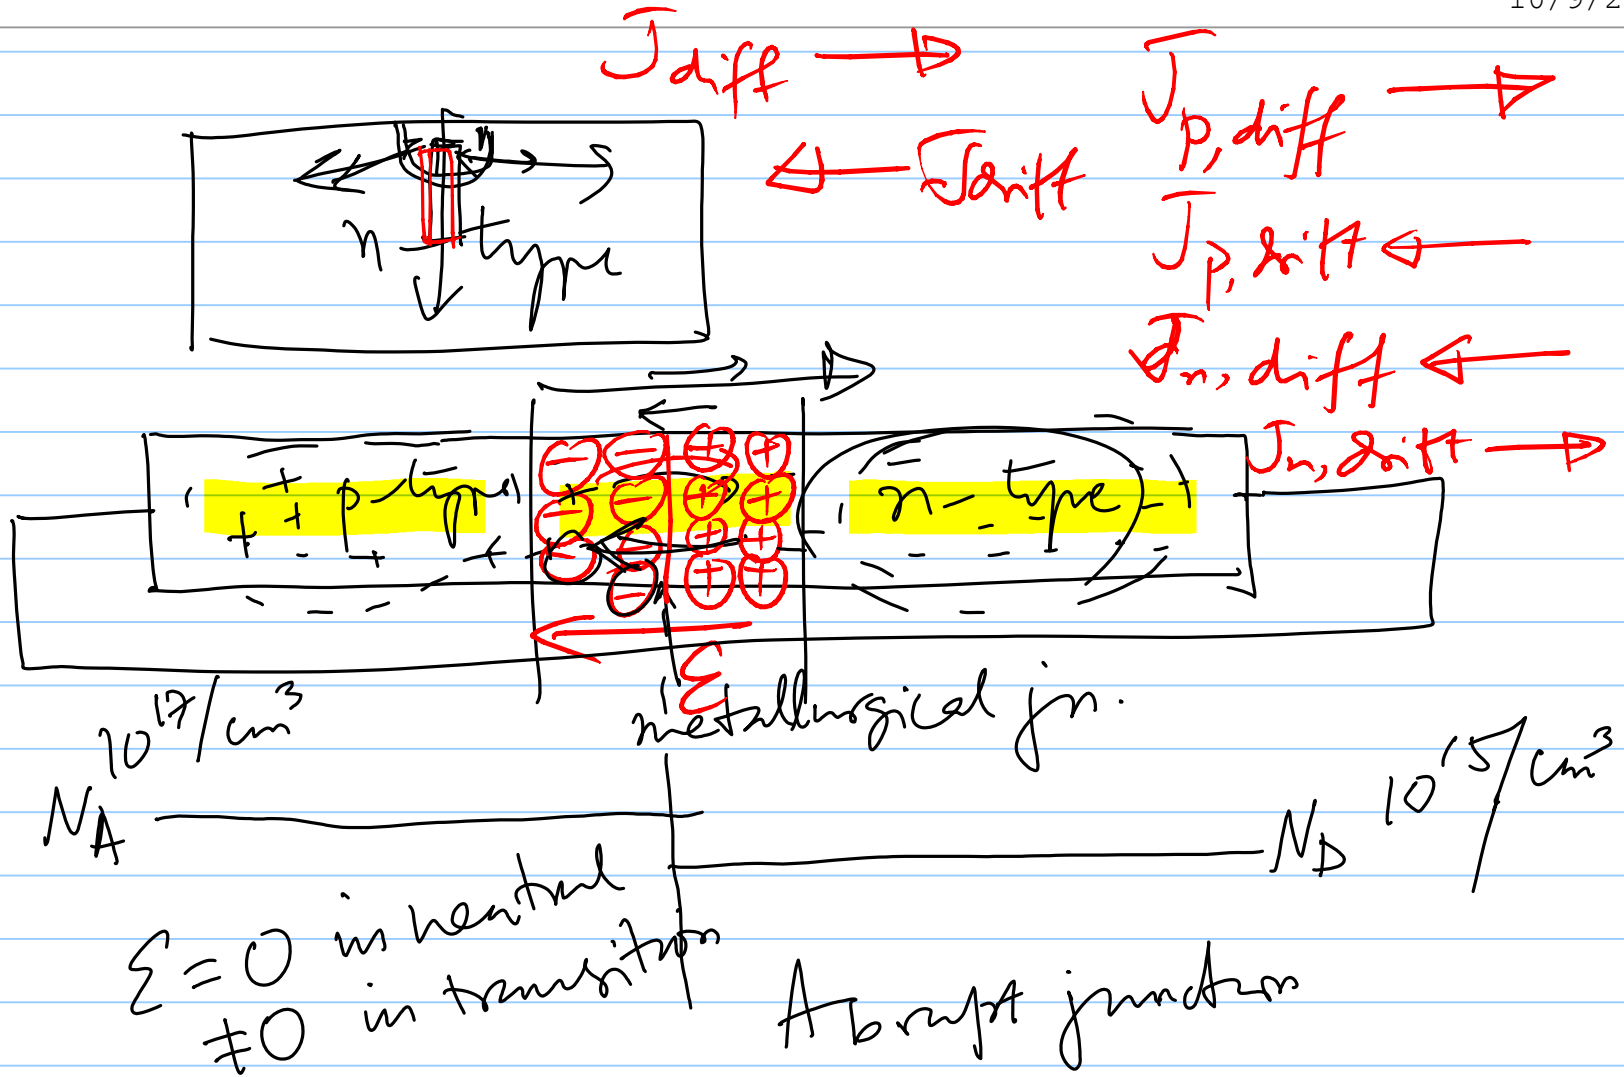 10/9/2
J diff
J drift
J p, diff
J p, drift
J n, diff
J n, drift
n
n-type
p-type
n-type
ε
metallurgical jn.
10^17/cm^3
10^15/cm^3
N_A
N_D
ε = 0 in neutral
≠0 in transition
Abrupt junction